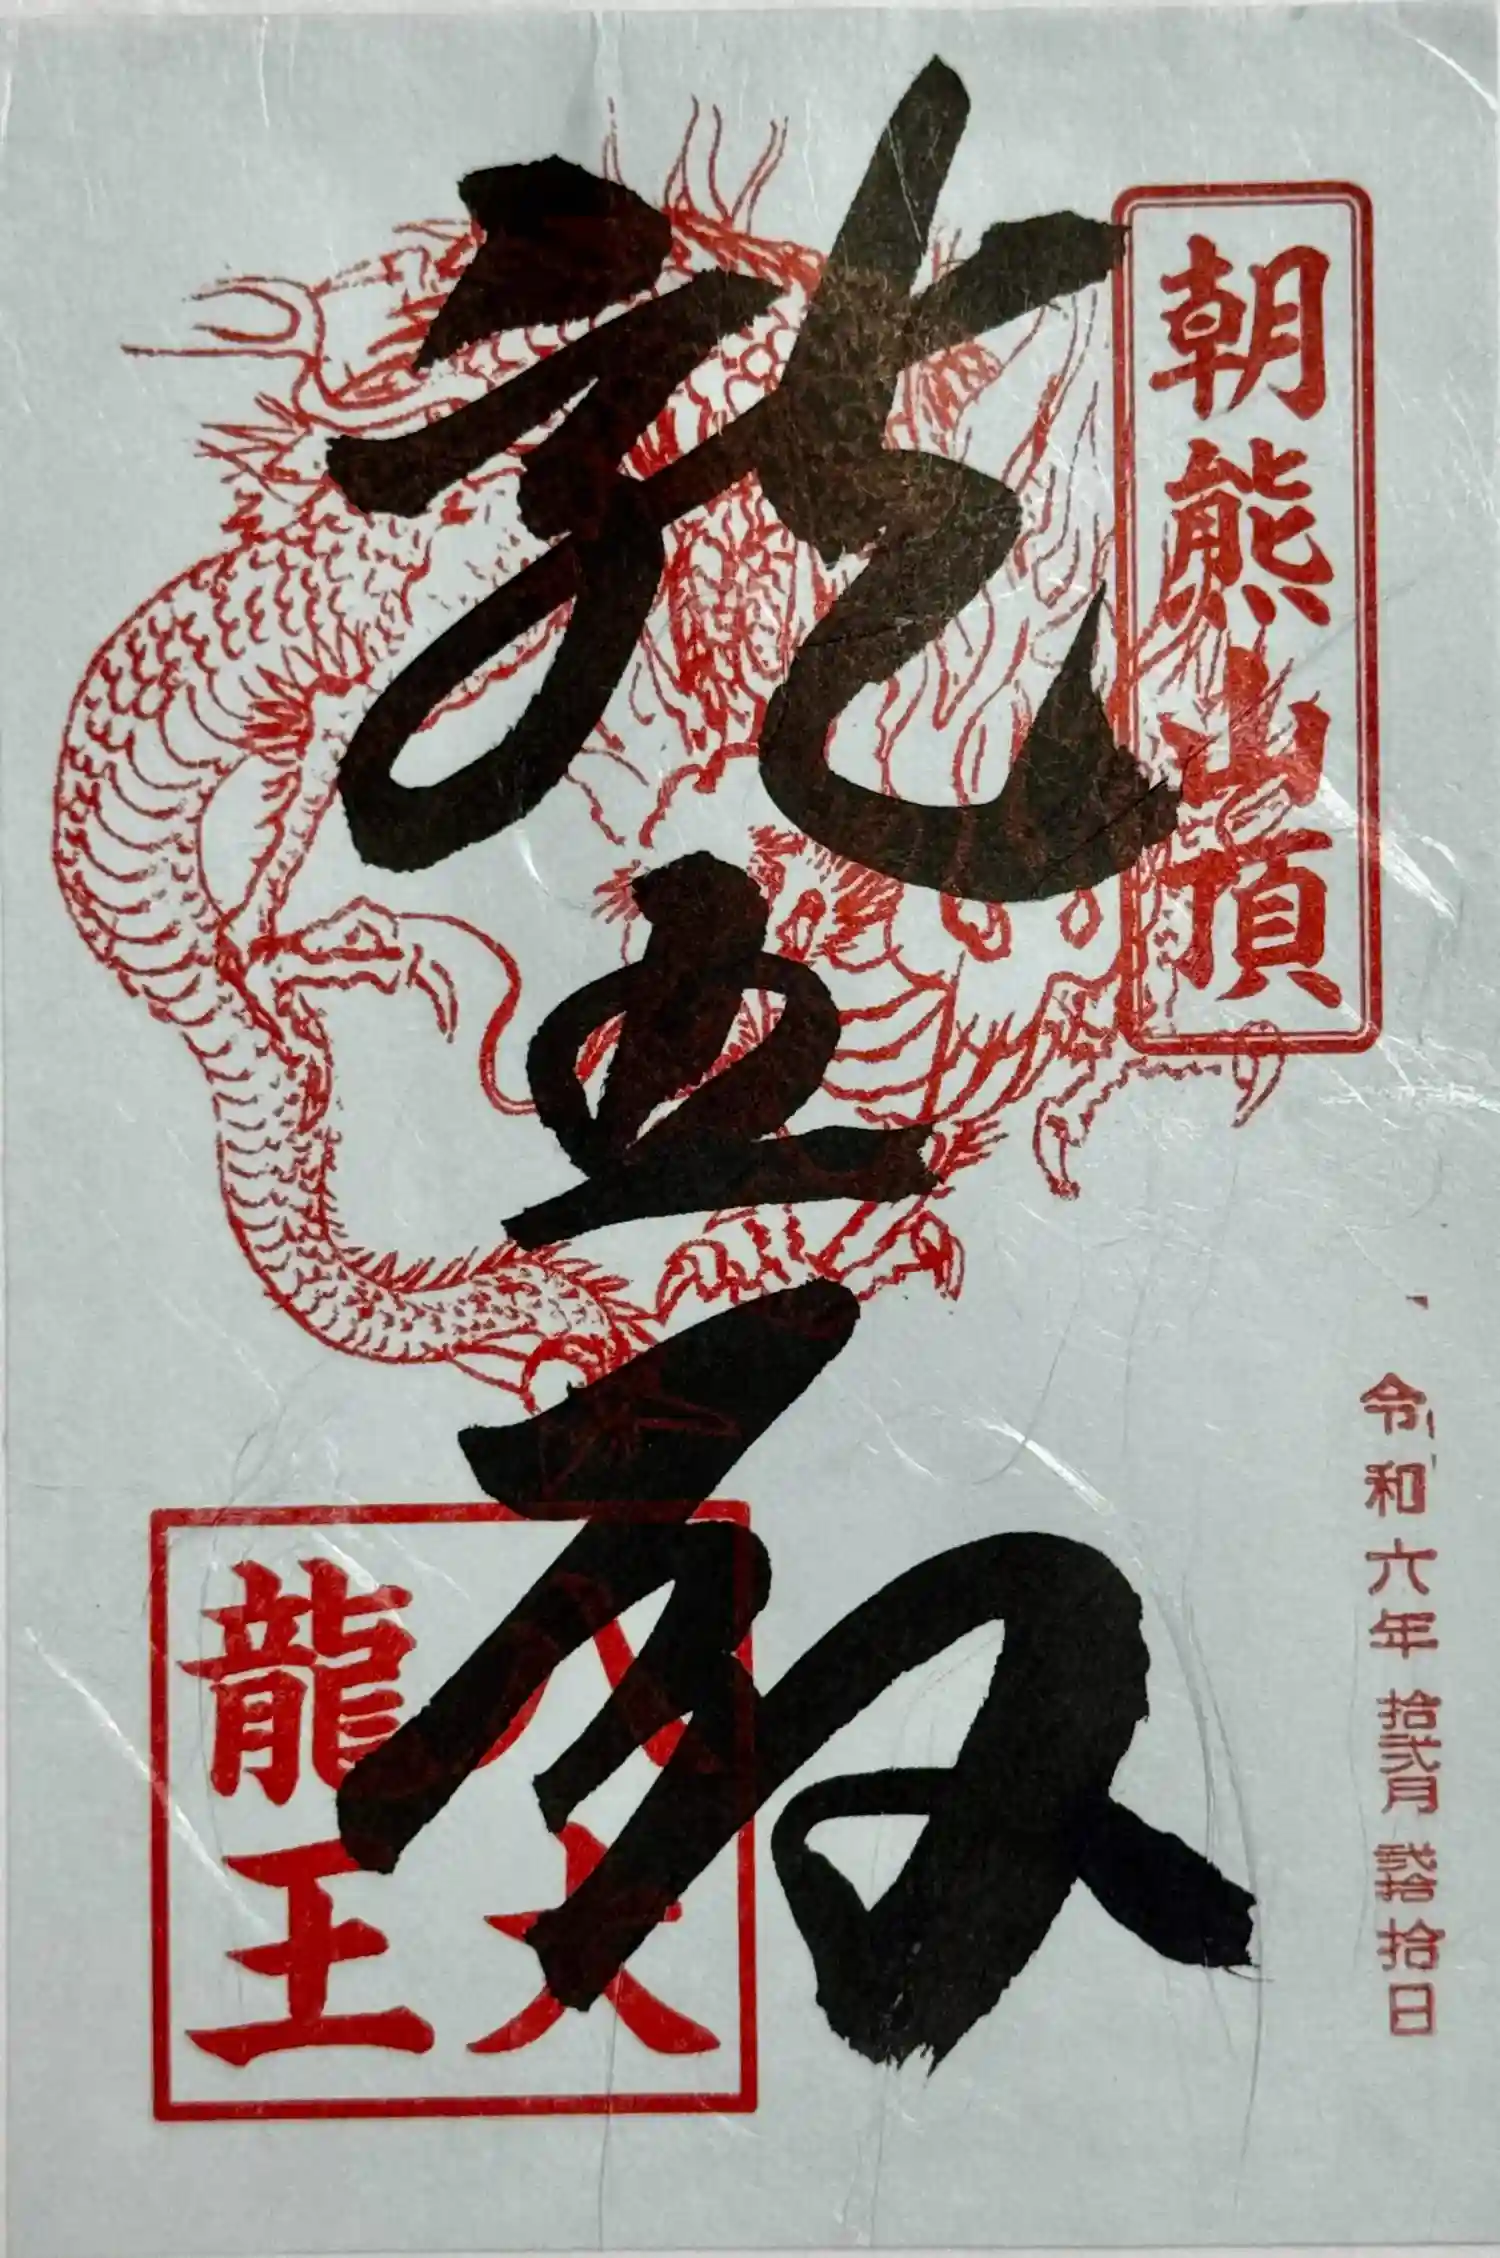 朝熊山頂
令和六年拾弐月弐拾拾日
龍
八大
龍王